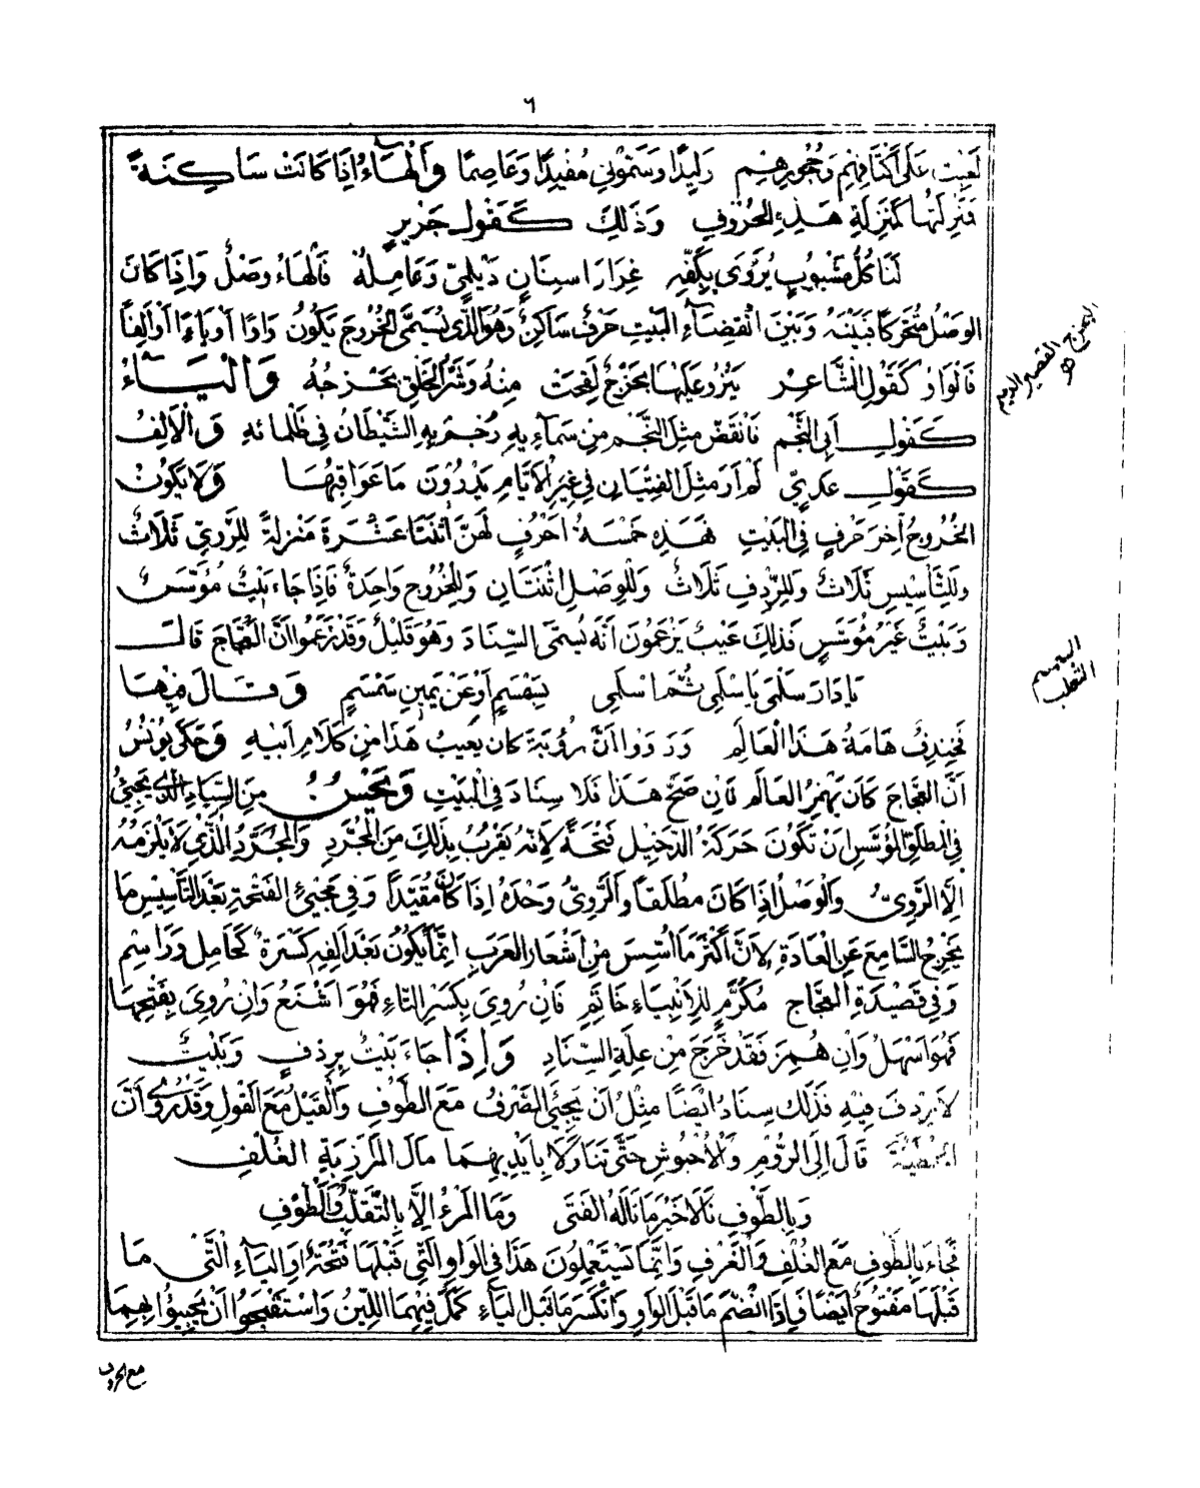 ٦
لَعِبْتُ عَلَى أَكْتَافِهِمْ وَحُجُورِهِمْ وَلِيدًا وَسَمَّوْنِي مُفِيدًا وَعَاصِمًا وَالْهَاءُ إِذَا كَانَتْ سَاكِنَةً
فَتُنْزِلَتُهَا كَمَنْزِلَةِ هَذِهِ الحُرُوفِ وَذَلِكَ كَقَوْلِ جَرِيرٍ
لَنَا كُلُّ مَشْبُوبٍ يُرَوَّى بِكَفِّهِ غِرَارَا سِنَانٍ دَيْلَمِيٍّ وَعَامِلُهْ فَالْهَاءُ وَصْلٌ وَإِذَا كَانَ
الوَصْلُ مُتَحَرِّكًا فَبَيْنَهُ وَبَيْنَ انْقِضَاءِ البَيْتِ حَرْفٌ سَاكِنٌ وَهُوَ الَّذِي يُسَمَّى الخُرُوجَ يَكُونُ وَاوًا أَوْ يَاءًا أَوْ أَلِفًا
فَالْوَاوُ كَقَوْلِ الشَّاعِرِ يَنْزُو عَلَيْهَا بَحْزَجٌ لَفِحَتْ مِنْهُ وَشَرُّ الخَلْقِ بَحْزَجُهُ وَالْيَاءُ
كَقَوْلِ أَبِي النَّجْمِ فَانْقَضَّ مِثْلَ النَّجْمِ مِنْ سَمَائِهِ رُجْمَ بِهِ الشَّيْطَانُ فِي ظَلْمَائِهِ وَالْأَلِفُ
كَقَوْلِ عَدِيٍّ لَمْ أَرَ مِثْلَ الفِتْيَانِ فِي غِيَرِ الْأَيَّامِ يَدْرُونَ مَا عَوَاقِبُهَا وَلَا يَكُونُ
الخُرُوجُ آخِرَ حَرْفٍ فِي البَيْتِ فَهَذِهِ خَمْسَةُ أَحْرُفٍ لَهُنَّ اثْنَتَا عَشْرَةَ مَنْزِلَةً لِلرَّوِيِّ ثَلَاثٌ
وَلِلتَّأْسِيسِ ثَلَاثٌ وَلِلرِّدْفِ ثَلَاثٌ وَلِلْوَصْلِ اثْنَتَانِ وَلِلْخُرُوجِ وَاحِدَةٌ فَإِذَا جَاءَ بَيْتٌ مُؤَسَّسٌ
وَبَيْتٌ غَيْرُ مُؤَسَّسٍ فَذَلِكَ عَيْبٌ يَزْعُمُونَ أَنَّهُ يُسَمَّى السِّنَادَ وَهُوَ قَلِيلٌ وَقَدْ زَعَمُوا أَنَّ العَجَّاجَ قَالَ
يَا دَارَ سَلْمَى يَا سْلَمِي ثُمَّ اسْلَمِي بِسَمْسَمٍ أَوْ عَنْ يَمِينِ سَمْسَمِ وَقَالَ فِيهَا
فَخِنْدِفٌ هَامَةُ هَذَا الْعَالَمِ وَرَوَوْا أَنَّ رُؤْبَةَ كَانَ يَعِيبُ هَذَا مِنْ كَلَامِ أَبِيهِ وَحَكَى يُونُسُ
أَنَّ العَجَّاجَ كَانَ يَهْمِزُ العَالَمَ فَإِنْ صَحَّ هَذَا فَلَا سِنَادَ فِي البَيْتِ وَيُحَسِّنُ مِنَ السِّنَادِ الَّذِي يَجِيءُ
فِي المُطْلَقِ المُؤَسَّسِ أَنْ تَكُونَ حَرَكَةُ الدَّخِيلِ فَتْحَةً لِأَنَّهُ يَقْرُبُ بِذَلِكَ مِنَ المُجَرَّدِ وَالمُجَرَّدُ الَّذِي لَا يَلْزَمُهُ
إِلَّا الرَّوِيُّ وَالوَصْلُ إِذَا كَانَ مُطْلَقًا وَالرَّوِيُّ وَحْدَهُ إِذَا كَانَ مُقَيَّدًا وَفِي مَجِيءِ الفَتْحَةِ بَعْدَ التَّأْسِيسِ مَا
يُخْرِجُ السَّامِعَ عَنِ العَادَةِ لِأَنَّ أَكْثَرَ مَا أُسِّسَ مِنْ أَشْعَارِ العَرَبِ إِنَّمَا يَكُونُ بَعْدَ أَلِفِهِ كَسْرَةٌ كَحَامِلٍ وَرَاسِمٍ
وَفِي قَصِيدَةِ العَجَّاجِ مُكَرَّمٍ لِلْأَنْبِيَاءِ خَاتَمِ فَإِنْ رُوِيَ بِكَسْرِ التَّاءِ فَهُوَ أَشْنَعُ وَإِنْ رُوِيَ بِفَتْحِهَا
فَهُوَ أَسْهَلُ وَإِنْ هُمِزَ فَقَدْ خَرَجَ مِنْ عِلَّةِ السِّنَادِ وَإِذَا جَاءَ بَيْتٌ بِرِدْفٍ وَبَيْتٌ
لَا رِدْفَ فِيهِ فَذَلِكَ سِنَادٌ أَيْضًا مِثْلُ أَنْ يَجِيءَ الصَّرْفُ مَعَ الطَّوْفِ وَالْقَيْلُ مَعَ القَوْلِ وَقَدْ رُوِيَ أَنَّ
الحُطَيْئَةَ قَالَ إِلَى الرُّومِ وَالْأُحْبُوشِ حَتَّى تَنَاوَلَا بِأَيْدِيهِمَا مَالَ المَرَازِبَةِ الغُلْفِ
وَبِالطَّوْفِ نَالَا خَيْرَ مَا نَالَهُ الفَتَى وَمَا الْمَرْءُ إِلَّا بِالتَّقَلُّبِ وَالطَّوْفِ
فَجَاءَ بِالطَّوْفِ مَعَ الغُلْفِ وَالْعُرْفِ وَإِنَّمَا يَسْتَعْمِلُونَ هَذَا فِي الوَاوِ الَّتِي قَبْلَهَا فَتْحَةٌ أَوِ اليَاءِ الَّتِي مَا
قَبْلَهَا مَفْتُوحٌ أَيْضًا فَإِذَا انْضَمَّ مَا قَبْلَ الوَاوِ وَانْكَسَرَ مَا قَبْلَ اليَاءِ كَمُلَ فِيهِمَا اللِّينُ وَاسْتَقْبَحُوا أَنْ يَجِيئُوا بِهِمَا
مع الحروف
البحزج القصير
السمسم
الثعلب